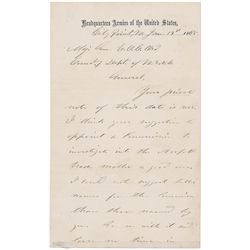 Headquarters Armies of the United States,
City Point, Va. Jan. 13th 1865
Maj. Gen. E.O.C. Ord
Comd.g Dept. of
General,
Your private
note of this date is rec'd.
I think your suggestion to
appoint a Commission to
investigate into the Norfolk
trade matter a good one.
I could not suggest better
names for the Commission
than those named by
you. Go on with it and
lose no time in